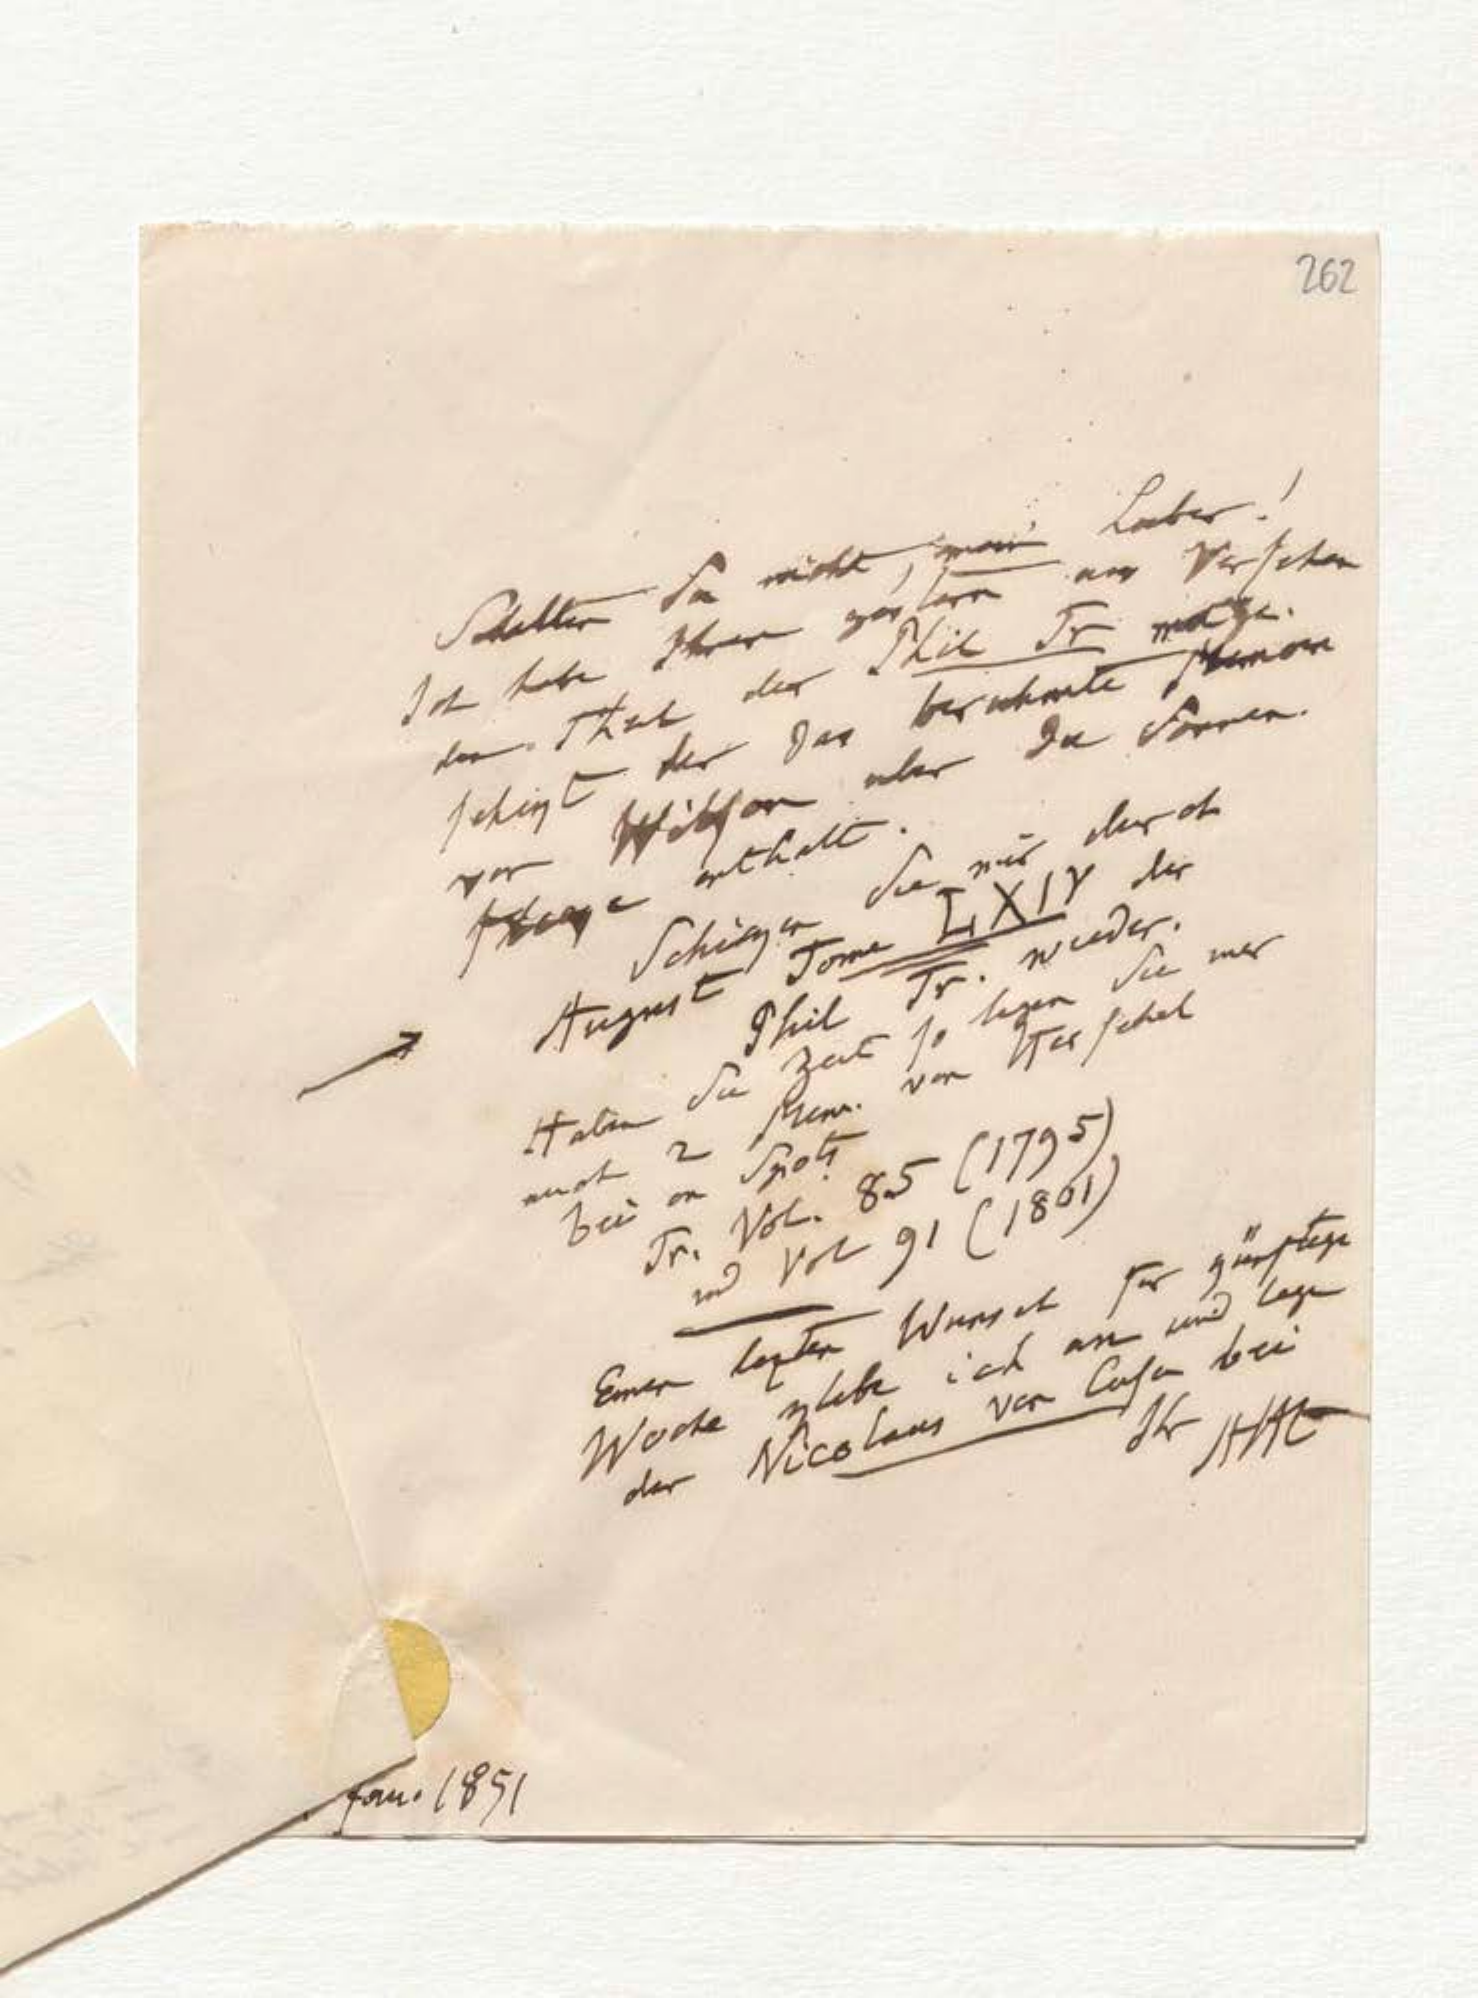 262
Schelten Sie nicht, mein Lieber!
Ich habe Ihnen gestern aus Versehen
den Theil der Phil Tr
schikt der das berühmte Memoire
von Wilson über die Sonnen.
enthält.
Schikken Sie mir durch
August Tome LXIV der
Phil Tr. wieder.
Haben Sie Zeit so legen Sie mir
auch 2 Mem. von Herschel
bei on Spots
Tr. Vol. 85 (1795)
und Vol 91 (1801)
Einen lezten Wunsch für günstige
Woche ich an und lege
den Nicolaus von Cusa bei
Ihr AHt
Jan. 1851